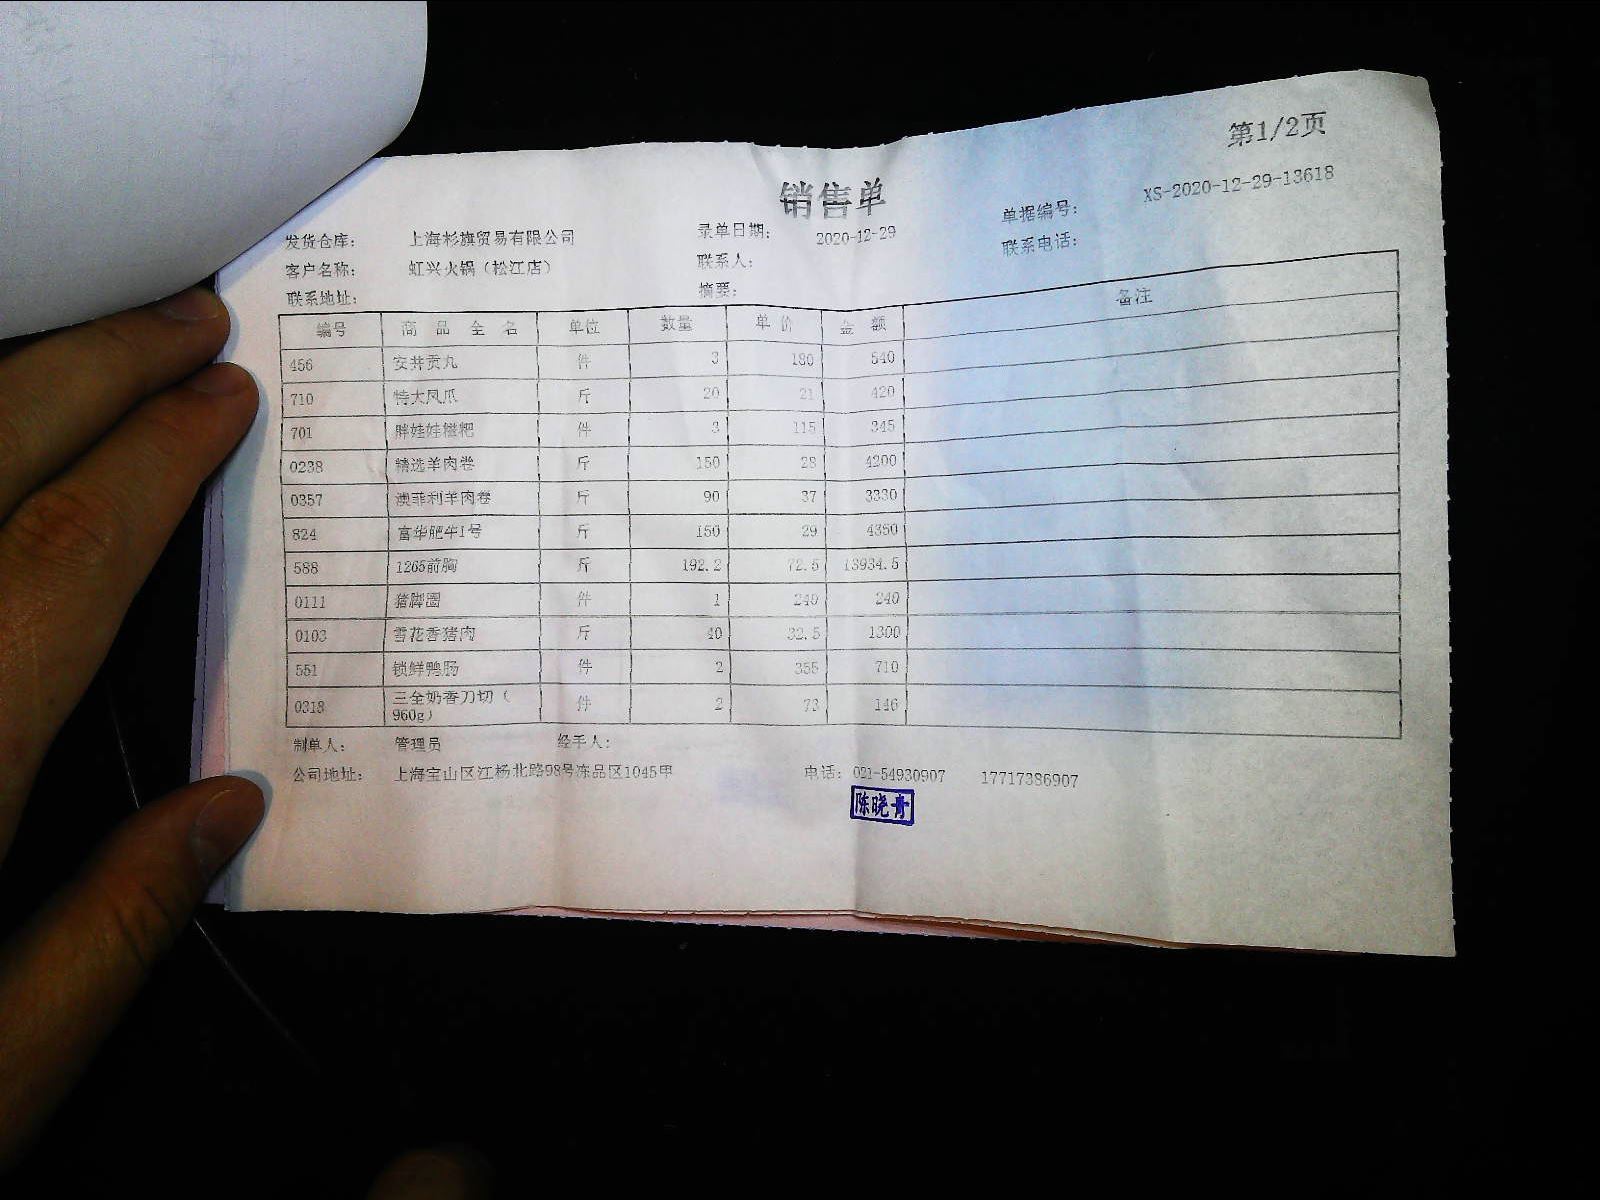 第1/2页
销售单
发货仓库： 上海杉旗贸易有限公司 录单日期： 2020-12-29 单据编号： XS-2020-12-29-13618
客户名称： 虹兴火锅（松江店） 联系人： 联系电话：
联系地址： 摘要：
编号 商品全名 单位 数量 单价 金额 备注
456 安井贡丸 件 3 180 540
710 特大凤爪 斤 20 21 420
701 胖娃娃糍粑 件 3 115 345
0238 精选羊肉卷 斤 150 28 4200
0357 澳菲利羊肉卷 斤 90 37 3330
824 富华肥牛1号 斤 150 29 4350
588 1265前胸 斤 192.2 72.5 13934.5
0111 猪脚圈 件 1 240 240
0103 雪花香猪肉 斤 40 32.5 1300
551 锁鲜鸭肠 件 2 355 710
0318 三全奶香刀切（ 件 2 73 146
960g）
制单人： 管理员 经手人：
公司地址： 上海宝山区江杨北路98号冻品区1045甲 电话：021-54930907 17717386907
陈晓青